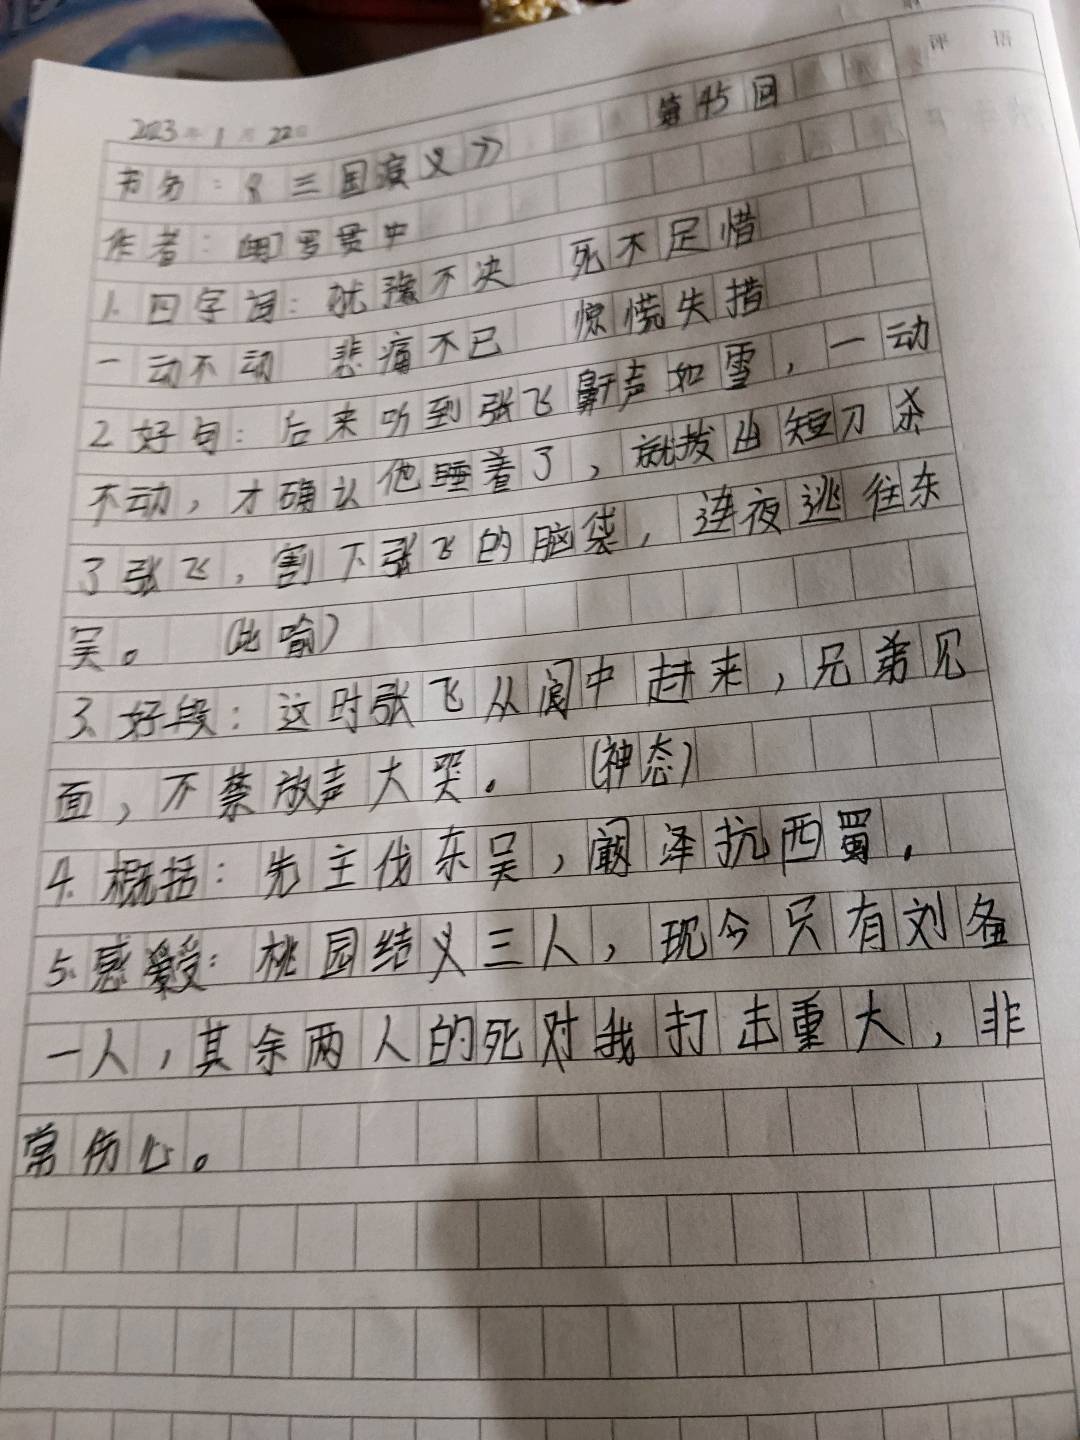 评 语
2023年1月22日
第45回
书名：《三国演义》
作者：[明]罗贯中
1.四字词：犹豫不决 死不足惜
一动不动 悲痛不已 惊慌失措
2.好句：后来听到张飞鼾声如雪，一动
不动，才确认他睡着了，就拔出短刀杀
了张飞，割下张飞的脑袋，连夜逃往东
吴。（比喻）
3.好段：这时张飞从阆中赶来，兄弟见
面，不禁放声大哭。（神态）
4.概括：先主伐东吴，阚泽抗西蜀.
5.感受：桃园结义三人，现今只有刘备
一人，其余两人的死对我打击重大，非
常伤心。